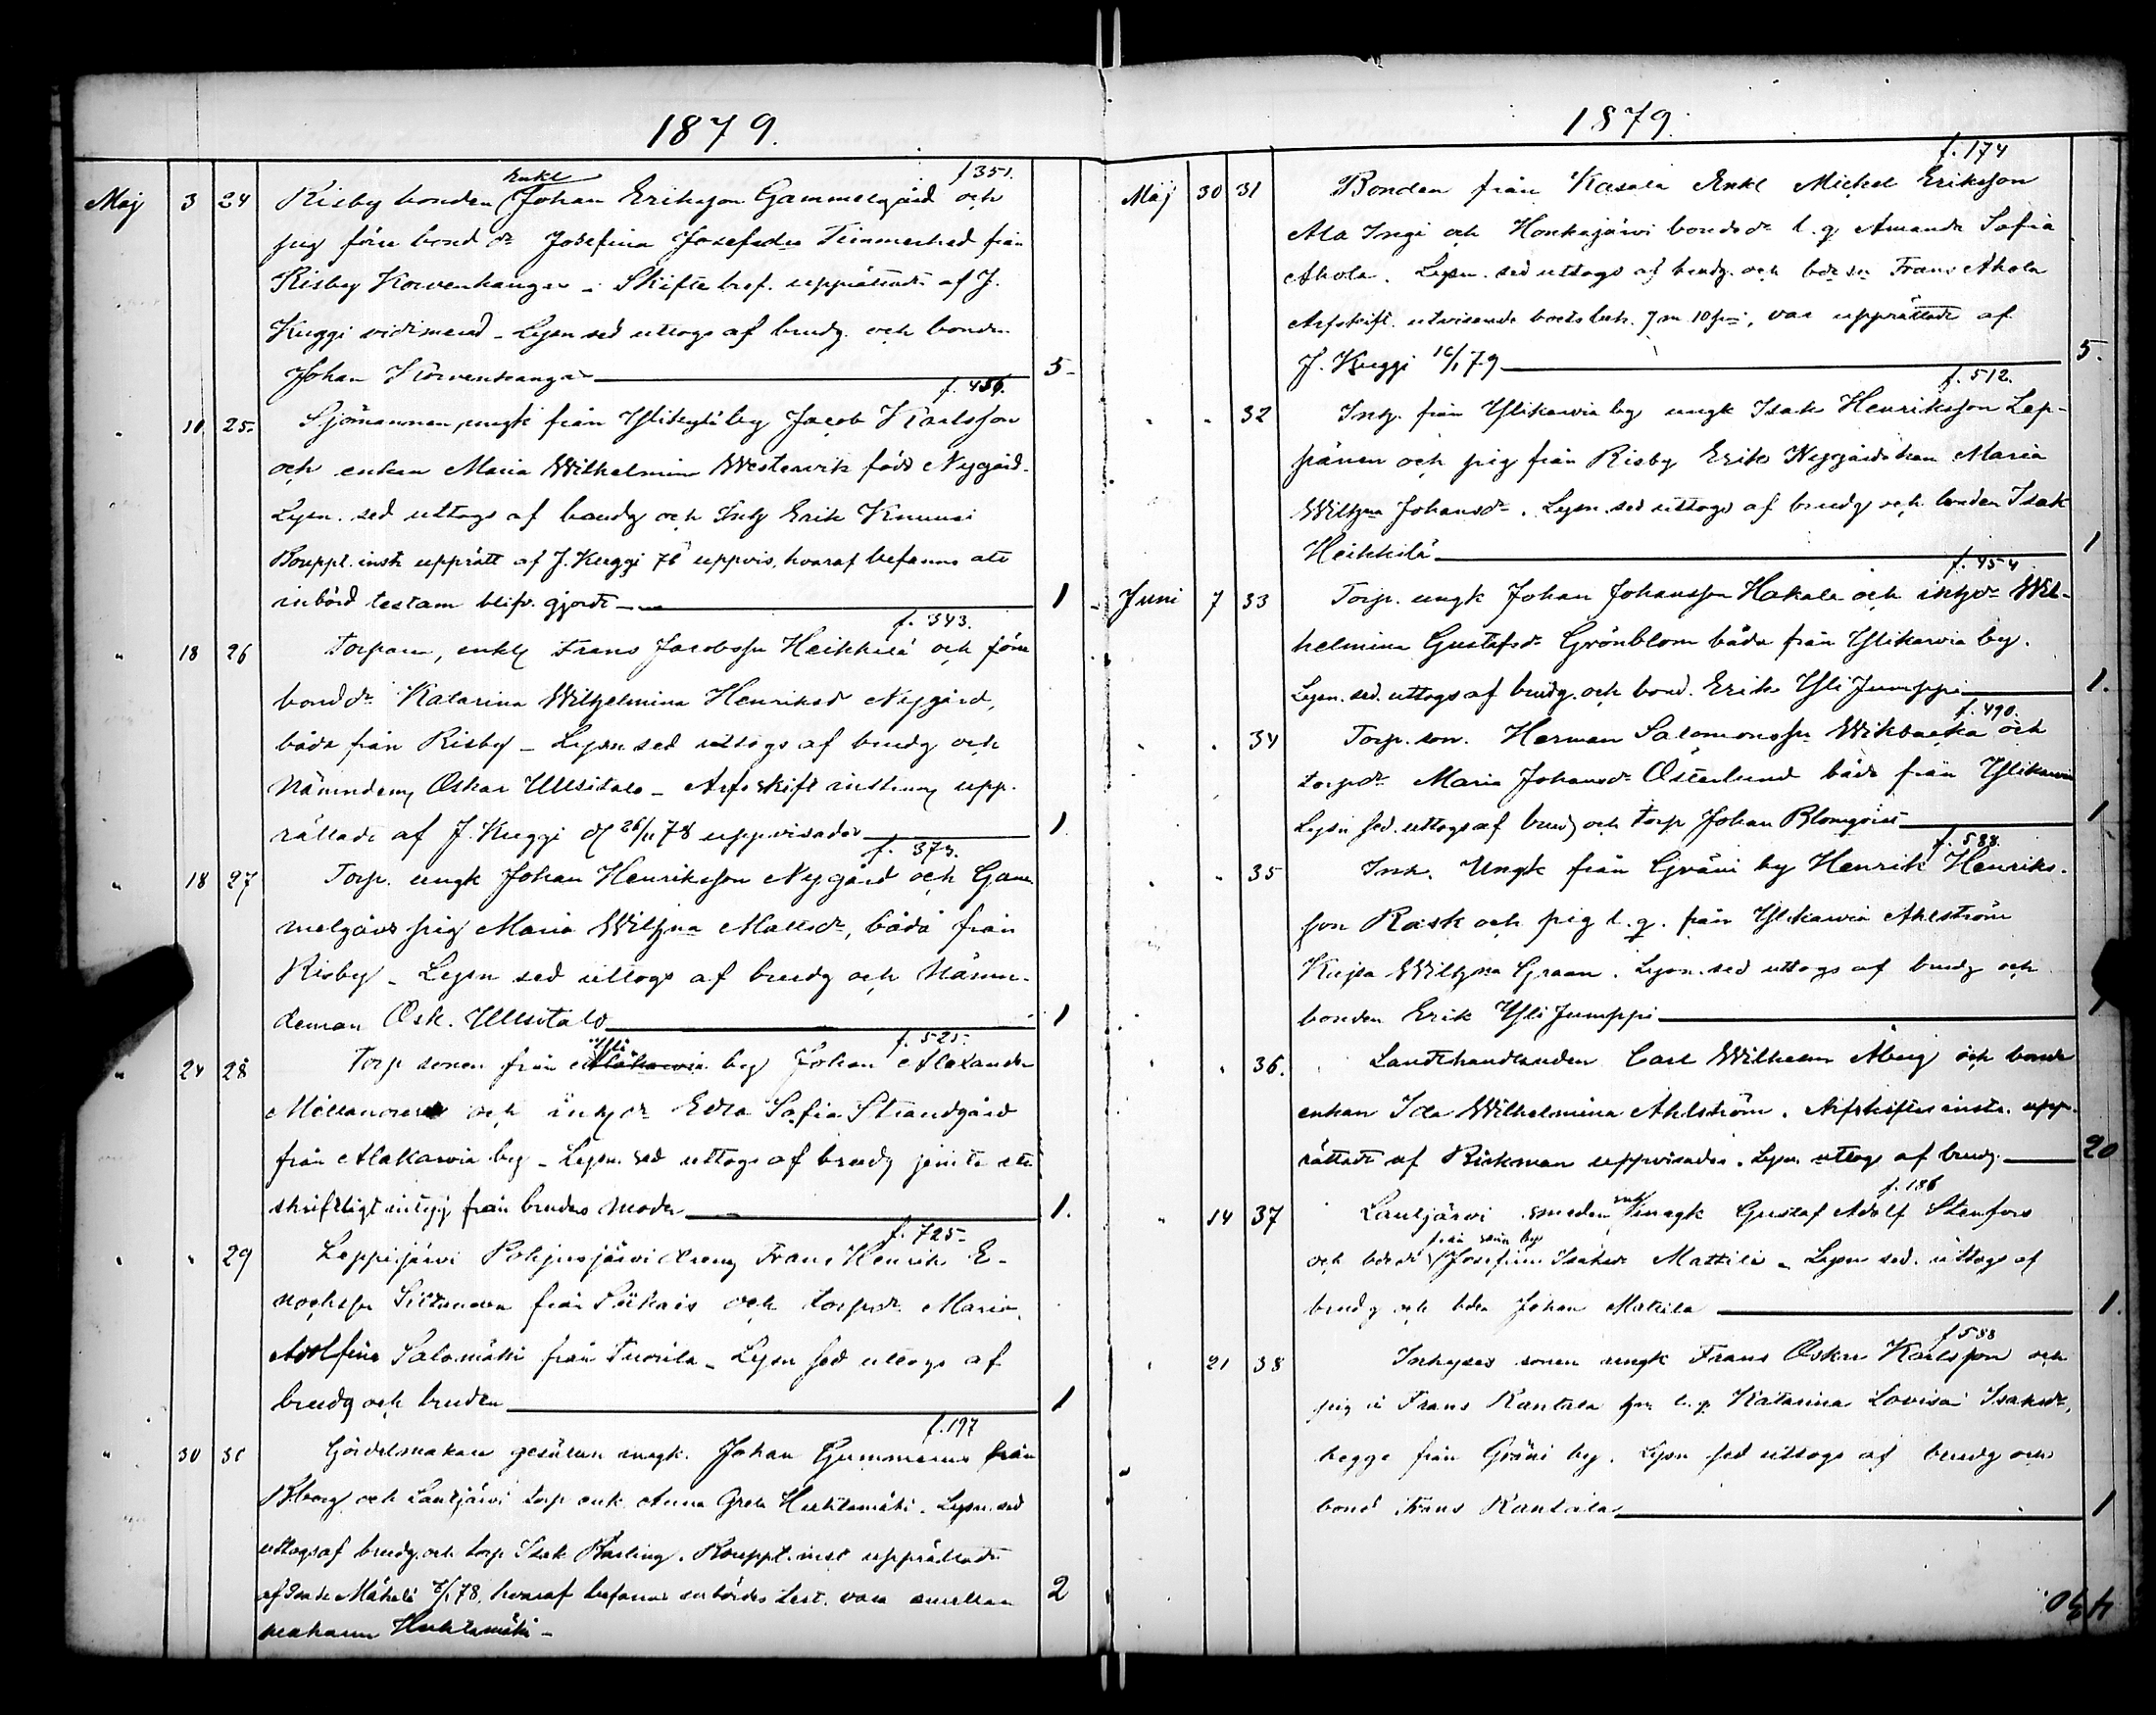 1879.
f 351.
Enkl
Maj 3 24 Risby bonden Johan Eriksson Gammelgård och
pig förre bond dr Josefina Josefsdr Timmerhed från
Risby Korvenkangas – Skiftebref. upprättadt af J.
Kuggi vidimerad – Lysn sed uttogs af brudg. och bonden
Johan Körvenkangas 5-
f. 456.
" 10 25. Sjömannen, ungk från Ylikylä by Jacob Karlsson
och enkan Maria Wilhelmina Westervik född Nygård.
Lysn. sed uttogs af brudg och Inhy Erik Knuusi
Bouppt. instr upprätt af J. Kuggi 78 uppvis, hvaraf befanns att
inbörd testam blifv. gjordt 1
f. 343.
" 18 26 Torparen, enkl Frans Jacobsson Heikkilä och förre
bonddr Katarina Wilhelmina Henriksd Nygård,
båda från Risby – Lysn sed uttogs af brudg och
Nämndem Oskar Ullsitalo – Arfskift instrum upp-
rättadt af J. Kuggi d 26/11 78 uppvisades 1
f. 373.
" 18 27 Torp. ungk Johan Henriksson Nygård och Gam-
melgård pig Maria Wilhna Mattsdr, båda från
Risby – Lysn sed uttogs af brudg och Nämn-
deman Osk. Ullsitalo 1
f. 525.
Yli
" 24 28 Torp sonen från Alakarvia by Johan Alexander
och inhydr Edla Sofia Strandgård
från Alakarvia by – Lysn. sed uttogs af brudg jemte ett
skriftligt intyg från brudens moder 1.
f. 725.
" " 29 Leppijärvi Pohjusjärvi dreng Frans Henrik E-
nochsson från och torpdr Maria
Adolfina Salomäki från Tuorila – Lysn sed uttogs af
brudg och bruden 1
f. 197
" 30 30 Gördelmakare gesällen ungk. Johan Gummerus från
Bborg och Lautjärvi torp enk. Anna Greta Huhtamäki. Lysn. sed
uttogs af brudg. och torp Isak Basling. Bouppt. inst upprättadt
af Isak Mäkelä 78, hvaraf befanns inbördes test. vara emellan
makarne Huhtamäki – 2
1879.
f. 174
Maj 30 31 Bonden från Kasala Enkl Michel Eriksson
Ala Ingi och Honkajärvi bondedr l. q Amanda Sofia
Ahola. Lysn. sed uttogs af brudg. och bdeson Frans Ahola
Arfskift. utvisande barts beh. 7 m 10 p, var upprättadt af
J. Kuggi 79 5.
f. 512.
" " 32 Inhy. från Ylikarvia by ungk Isak Henriksson Lep-
pänen och pig från Risby Erik Nygårds han Maria
Wilhna Johansdr. Lysn. sed uttogs af brudg och bonden Isak
Heikkilä 1
f. 454
Juni 7 33 Torp. ungk Johan Johansson Hakala och inhydr Wil-
helmina Gustafsdr Grönblom båda från Ylikarvia by.
Lysn. sed. uttogs af brudg. och bond. Erik Yli Jumppi 1.
f. 490.
" " 34 Torp. son. Herman Salomonsson Wikbacka och
torpdr Maria Johansdr Österlund båda från Ylikarvia
Lysn sed. uttogs af brudg och torp Johan Blomqvist 1
f. 588.
" " 35 Inh. Ungk från Gräni by Henrik Henriks-
son Rask och pig l. q. från Ylikarvia Ahlström
Kujsa Wilhna Graan. Lysn. sed uttogs af brudg och
bonden Erik Yli Jumppi 1
" " 36. Landthandlanden Carl Wilhelm Åberg och bonde
enkan Ida Wilhelmina Ahlström. Arfskiftes instr. upp-
rättadt af Rickman uppvisades. Lysn uttogs af brudg. 20
f. 186
" 14 37 Lautjärvi smeden ungk Gustaf Adolf Stenfors
från sam by
och bdedr Josefina Isaksdr Mattila – Lysn sed. uttogs af
brudg och bden Johan Mattila 1.
f 588
" 21 38 Inhyses sonen ungk Frans Oskar Karlsson och
pig i Frans Rantala l. q. Katarina Lovisa Isaksdr,
begge från Gräni by. Lysn sed uttogs af brudg och
bond Frans Rantala 1